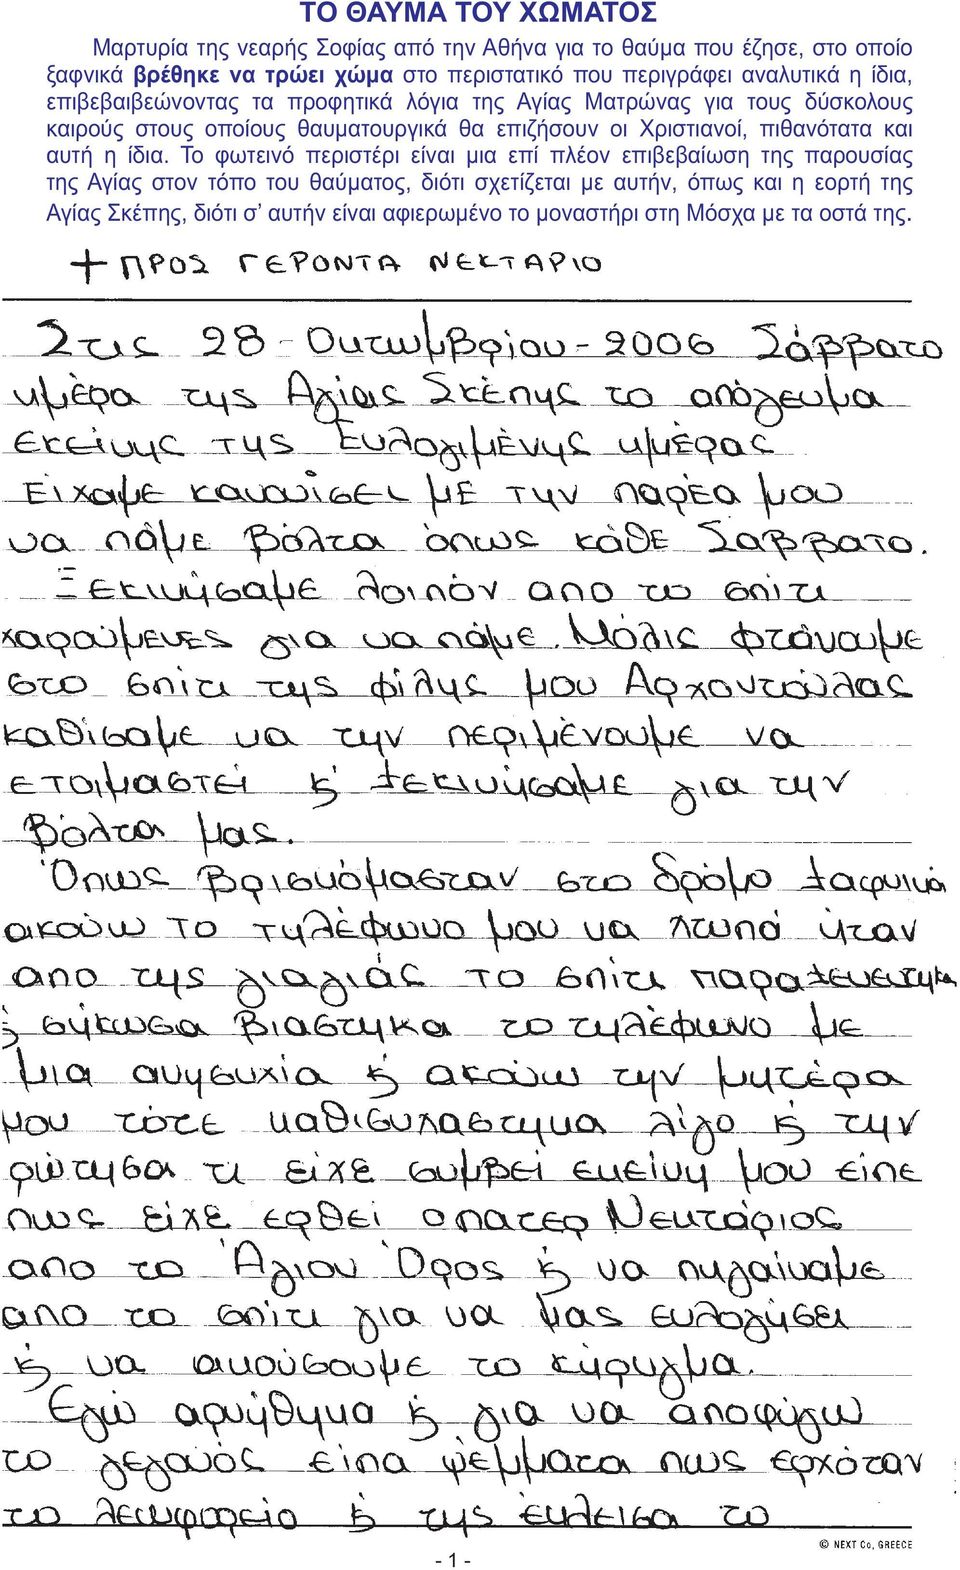 ΤΟ ΘΑΥΜΑ ΤΟΥ ΧΩΜΑΤΟΣ
Μαρτυρία της νεαρής Σοφίας από την Αθήνα για το θαύμα που έζησε, στο οποίο
ξαφνικά βρέθηκε να τρώει χώμα στο περιστατικό που περιγράφει αναλυτικά η ίδια,
επιβεβαιβεώνοντας τα προφητικά λόγια της Αγίας Ματρώνας για τους δύσκολους
καιρούς στους οποίους θαυματουργικά θα επιζήσουν οι Χριστιανοί, πιθανότατα και
αυτή η ίδια. Το φωτεινό περιστέρι είναι μια επί πλέον επιβεβαίωση της παρουσίας
της Αγίας στον τόπο του θαύματος, διότι σχετίζεται με αυτήν, όπως και η εορτή της
Αγίας Σκέπης, διότι σ' αυτήν είναι αφιερωμένο το μοναστήρι στη Μόσχα με τα οστά της.
+ ΠΡΟΣ ΓΕΡΟΝΤΑ ΝΕΚΤΑΡΙΟ
Στις 28 - Οκτωμβρίου - 2006 Σάββατο
ημέρα της Αγίας Σκέπης το απόγευμα
Εκείνης της Ευλογιμένης ημέρας
Είχαμε κανονίσει με την παρέα μου
να πάμε βόλτα όπως κάθε Σαββατο.
Ξεκινήσαμε λοιπόν απο το σπίτι
χαρούμενες για να πάμε. Μόλις φτάναμε
στο σπίτι της φίλης μου Αρχοντούλας
καθίσαμε να την περιμένουμε να
ετοιμαστεί κ' ξεκινήσαμε για την
βόλτα μας.
Όπως βρισκόμασταν στο δρόμο ξαφνικά
ακούω το τηλέφωνο μου να χτυπά ήταν
απο της γιαγιάς το σπίτι παραξενευτηκα
κ' σήκωσα βιαστηκα το τηλέφωνο με
μια ανησυχία κ' ακούω την μητέρα
μου τότε καθισυχαστηκα λίγο κ' την
ρώτησα τι είχε συμβεί εκείνη μου είπε
πως είχε ερθεί ο πατερ Νεκτάριος
απο το Άγιον Όρος κ' να πηγαίναμε
απο το σπίτι για να μας ευλογήσει
κ' να ακούσουμε το κήρυγμα.
Εγώ αρνήθηκα κ' για να αποφύγω
το γεγονός είπα ψέμματα πως ερχόταν
το λεωφορείο κ' της έκλεισα το
© NEXT Co, GREECE
- 1 -